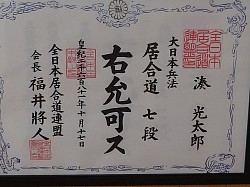 湊 光太郎
大日本兵法
居合道 七段
右允可ス
皇紀二千六百八十一年十月十七日
全日本居合道連盟
会長 福井將人